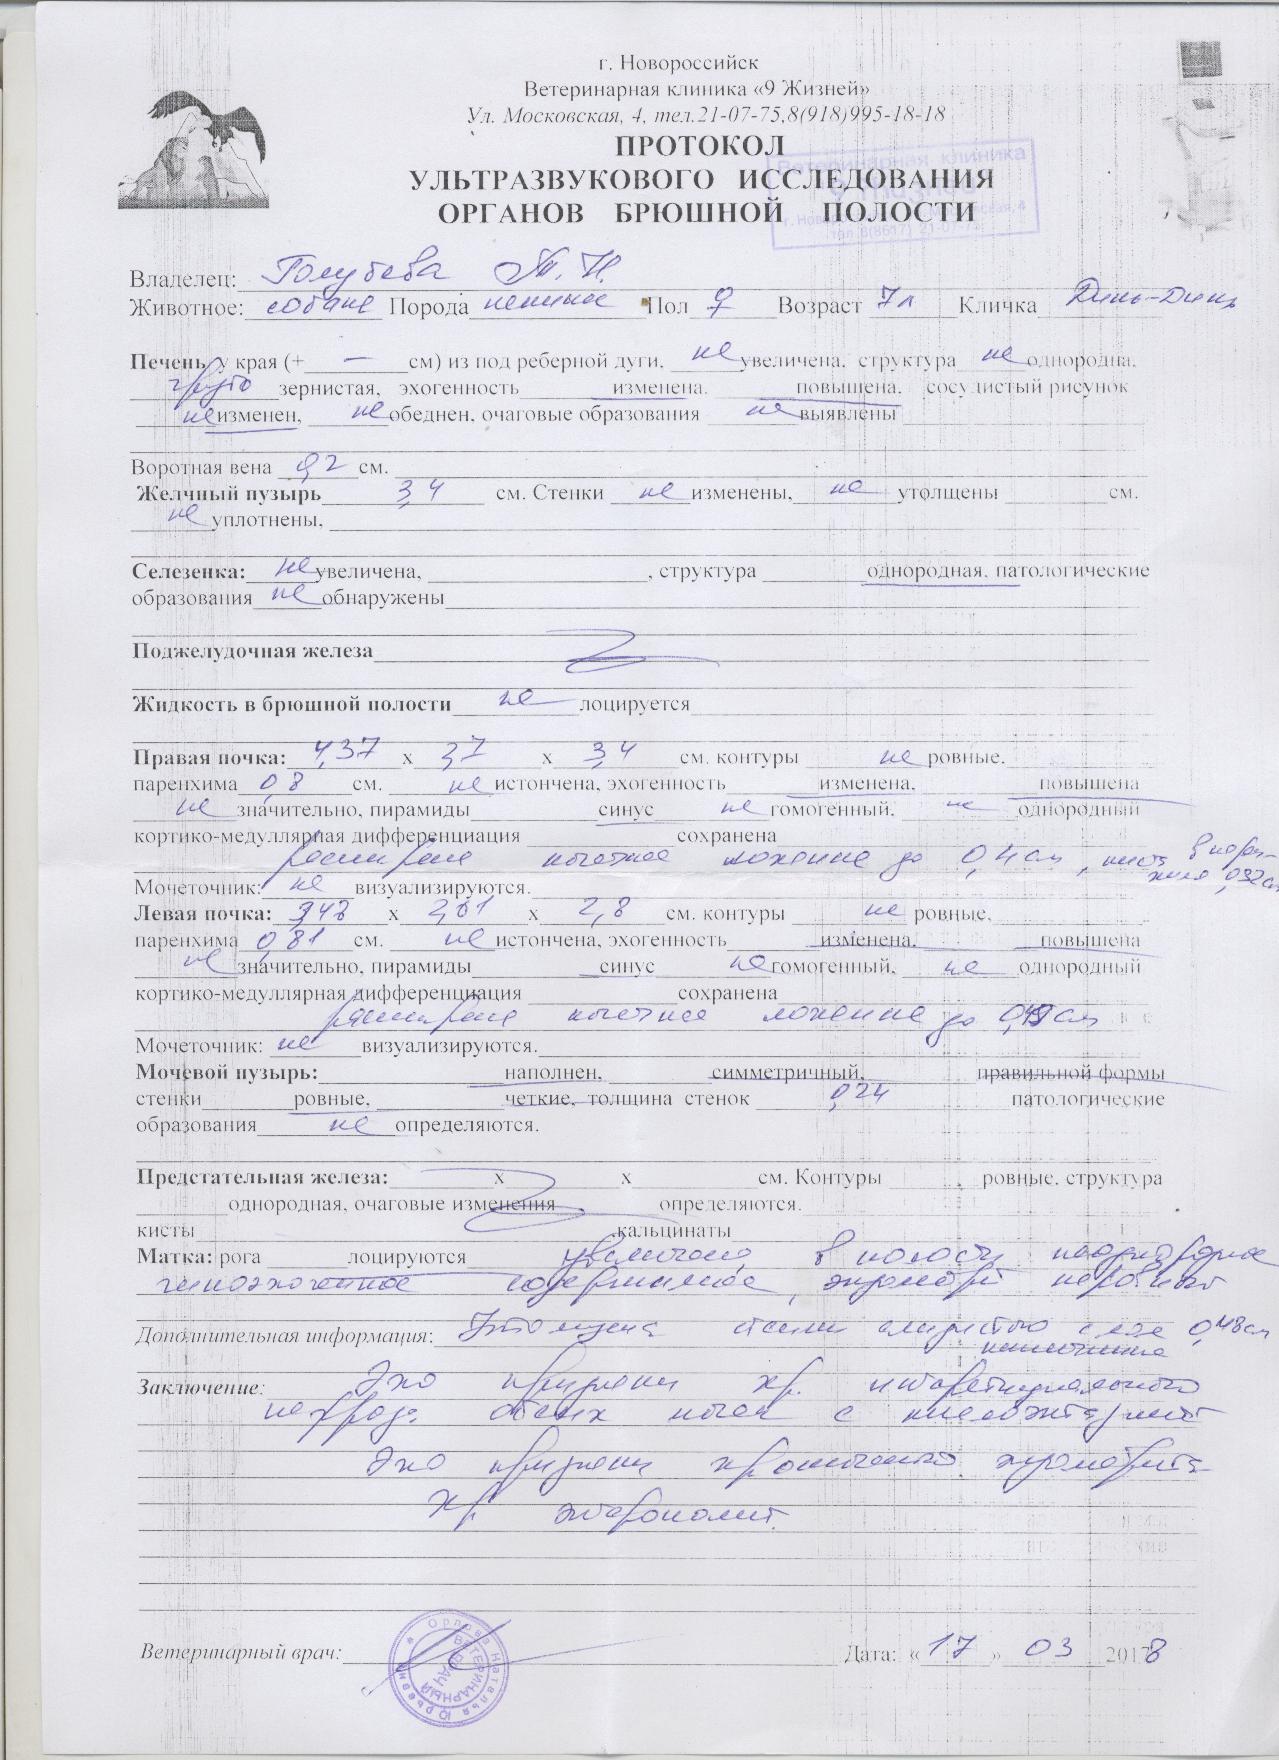 г. Новороссийск
Ветеринарная клиника «9 Жизней»
Ул. Московская, 4, тел.21-07-75,8(918)995-18-18
ПРОТОКОЛ
УЛЬТРАЗВУКОВОГО ИССЛЕДОВАНИЯ
ОРГАНОВ БРЮШНОЙ ПОЛОСТИ
Ветеринарная клиника
Владелец: Голубева Т. Н.
Животное: собака Порода пекинес Пол ♀ Возраст 7л Кличка Динь-Динь
Печень у края (+ — см) из под реберной дуги, не увеличена, структура не однородна,
грубо зернистая, эхогенность изменена, повышена, сосудистый рисунок
не изменен, не обеднен, очаговые образования не выявлены
Воротная вена 0,2 см.
Желчный пузырь 3,4 см. Стенки не изменены, не утолщены см.
не уплотнены,
Селезенка: не увеличена, , структура однородная, патологические
образования не обнаружены
Поджелудочная железа
Жидкость в брюшной полости не лоцируется
Правая почка: 4,37 х 2,7 х 3,4 см. контуры не ровные,
паренхима 0,8 см. не истончена, эхогенность изменена, повышена
не значительно, пирамиды синус не гомогенный, не однородный
кортико-медуллярная дифференциация сохранена
расширение лоханки до 0,4 см, киста в 0,32 см
Мочеточник: не визуализируются.
Левая почка: 3,43 х 2,61 х 2,8 см. контуры не ровные,
паренхима 0,81 см. не истончена, эхогенность изменена, повышена
не значительно, пирамиды синус не гомогенный, не однородный
кортико-медуллярная дифференциация сохранена
расширение до см
Мочеточник: не визуализируются.
Мочевой пузырь: наполнен, симметричный, правильной формы
стенки ровные, четкие, толщина стенок 0,24 патологические
образования не определяются.
Предстательная железа: х х см. Контуры , ровные, структура
однородная, очаговые изменения определяются.
кисты кальцинаты
Матка: рога лоцируются увеличена, в полости неоднородное
гипоэхогенное содержимое, эндометрий неровный
Дополнительная информация: Утолщена стенки слизистого слоя 0,48см
кишечника
Заключение: Эхо признаки хр. интерстициального
нефроза обеих почек с пиелоэктазией
Эхо признаки хронический эндометрита
Хр. энтероколит
Ветеринарный врач: Дата: « 17 » 03 2018
Орлова Наталья Юрьевна
ВЕТЕРИНАРНЫЙ ВРАЧ